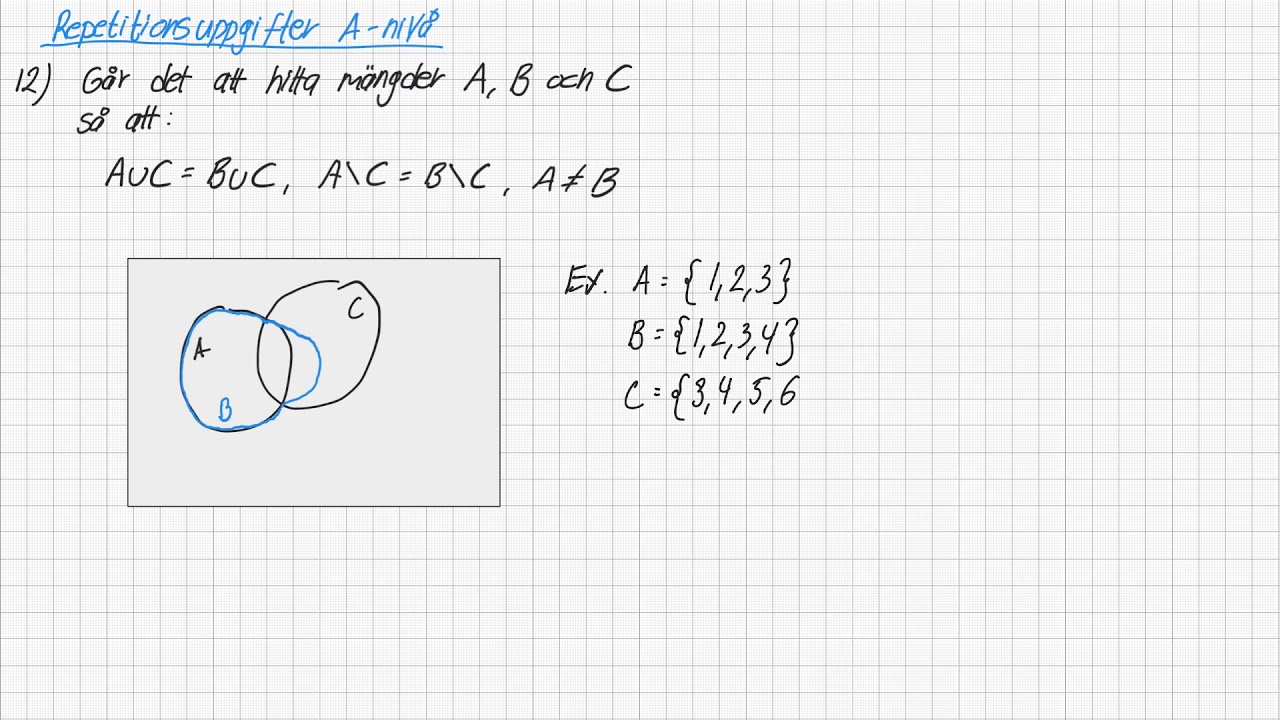 Repetitionsuppgifter A-nivå
12) Går det att hitta mängder A, B och C
så att:
A∪C = B∪C, A\C = B\C, A≠B
A
B
C
Ex. A = {1,2,3}
B = {1,2,3,4}
C = {3,4,5,6